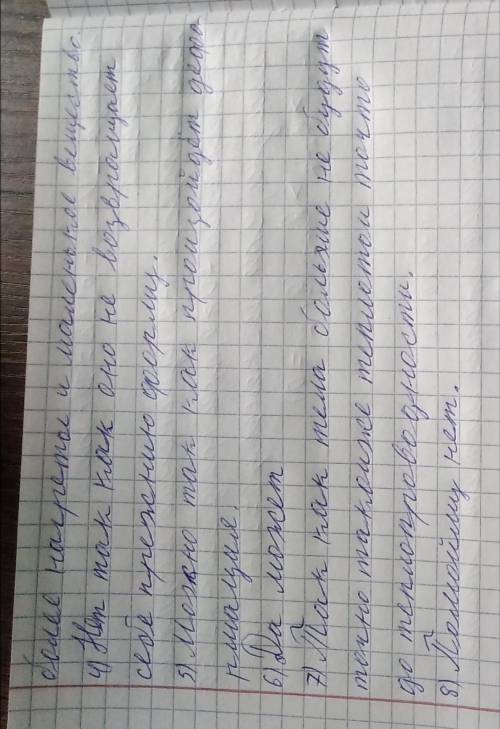 более нагретое и маленькое вещество.
4) Нет так как оно не возвращает
себе прежнию форму.
5) Можно так как произойдёт дефо
рмация.
6) Да может
7) Так как тела больше не будут
точно такойже теплотой точто
до теплопроводности.
8) Помойму нет.